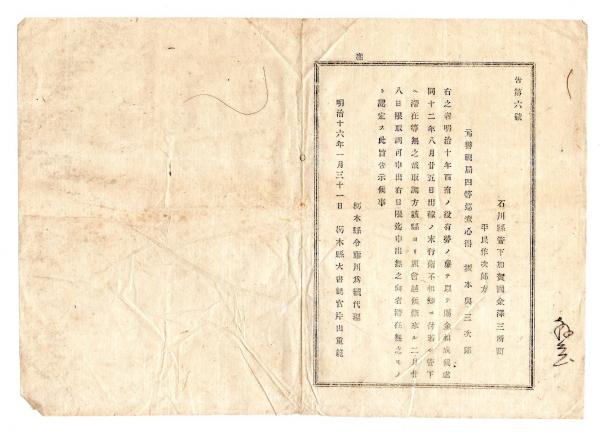 告第六號
石川縣管下加賀國金澤三所町
平民作次郎方
元警視局四等巡査心得 坂本與三次郎
右之者明治十年西南ノ役有勞ノ廉ヲ以テ賜金相成候處
同十二年八月廿五日出稼ノ末行衛不相知ニ付若シ管下
ヘ潜在等無之哉取調方該縣ヨリ照會越候條來ル二月廿
八日限取調可申出右日限迄申出無之向者潜在無之モノ
ト認定ス此旨告示候事
栃木縣令藤川爲親代理
明治十六年一月三十一日 栃木縣大書記官片山重範